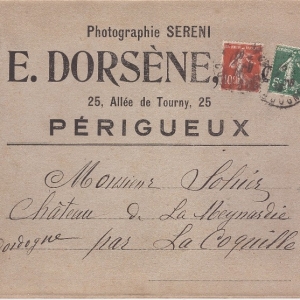 Photographie SERENI
E. DORSÈNE,
25, Allée de Tourny, 25
PÉRIGUEUX
Monsieur
Château de La Meynardie
par La Coquille
Dordogne